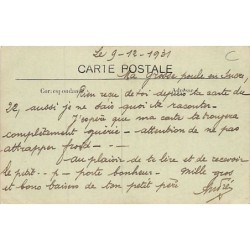 Le 9-12-1931
CARTE POSTALE
Ma Grosse poule en
Correspondance
Rien reçu de toi depuis ta carte du
22, aussi je ne sais quoi te raconter.
J'espère que ma carte te trouvera
complètement guérie - attention de ne pas
attrapper froid -
au plaisir de te lire et de recevoir
le petit - p - porte bonheur. Mille gros
et bons baisers de ton petit père